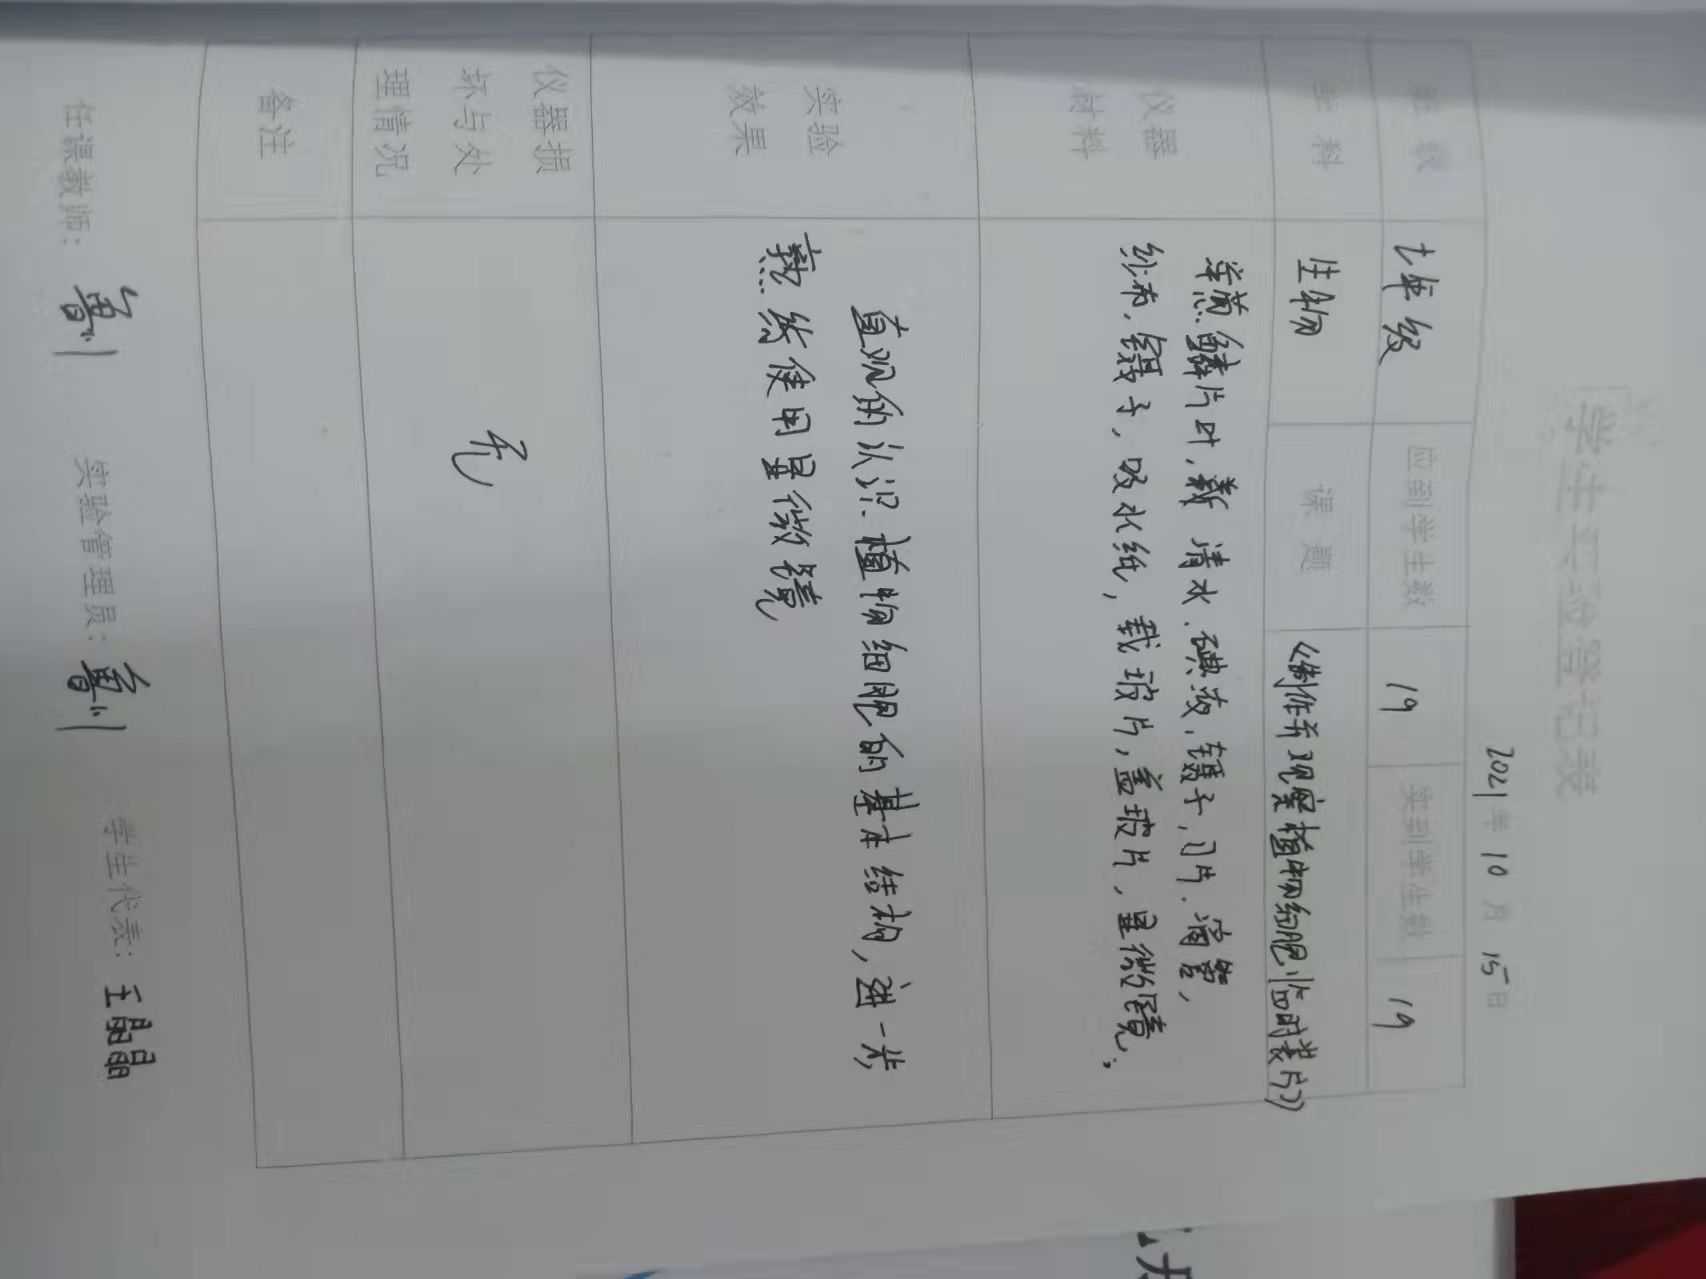 学生实验登记表
2021年10月15日
年级 七年级 应到学生数 19 实到学生数 19
学科 生物 课题 《制作并观察植物细胞临时装片》
仪器
材料
洋葱鳞片叶, 清水、碘液, 镊子, 刀片、滴管,
纱布, 镊子, 吸水纸, 载玻片, 盖玻片, 显微镜;
实验
效果
直观的认识植物细胞的基本结构, 进一步
熟练使用显微镜
仪器损
坏与处
理情况
无
备注
任课教师: 实验管理员: 学生代表: 王晶晶